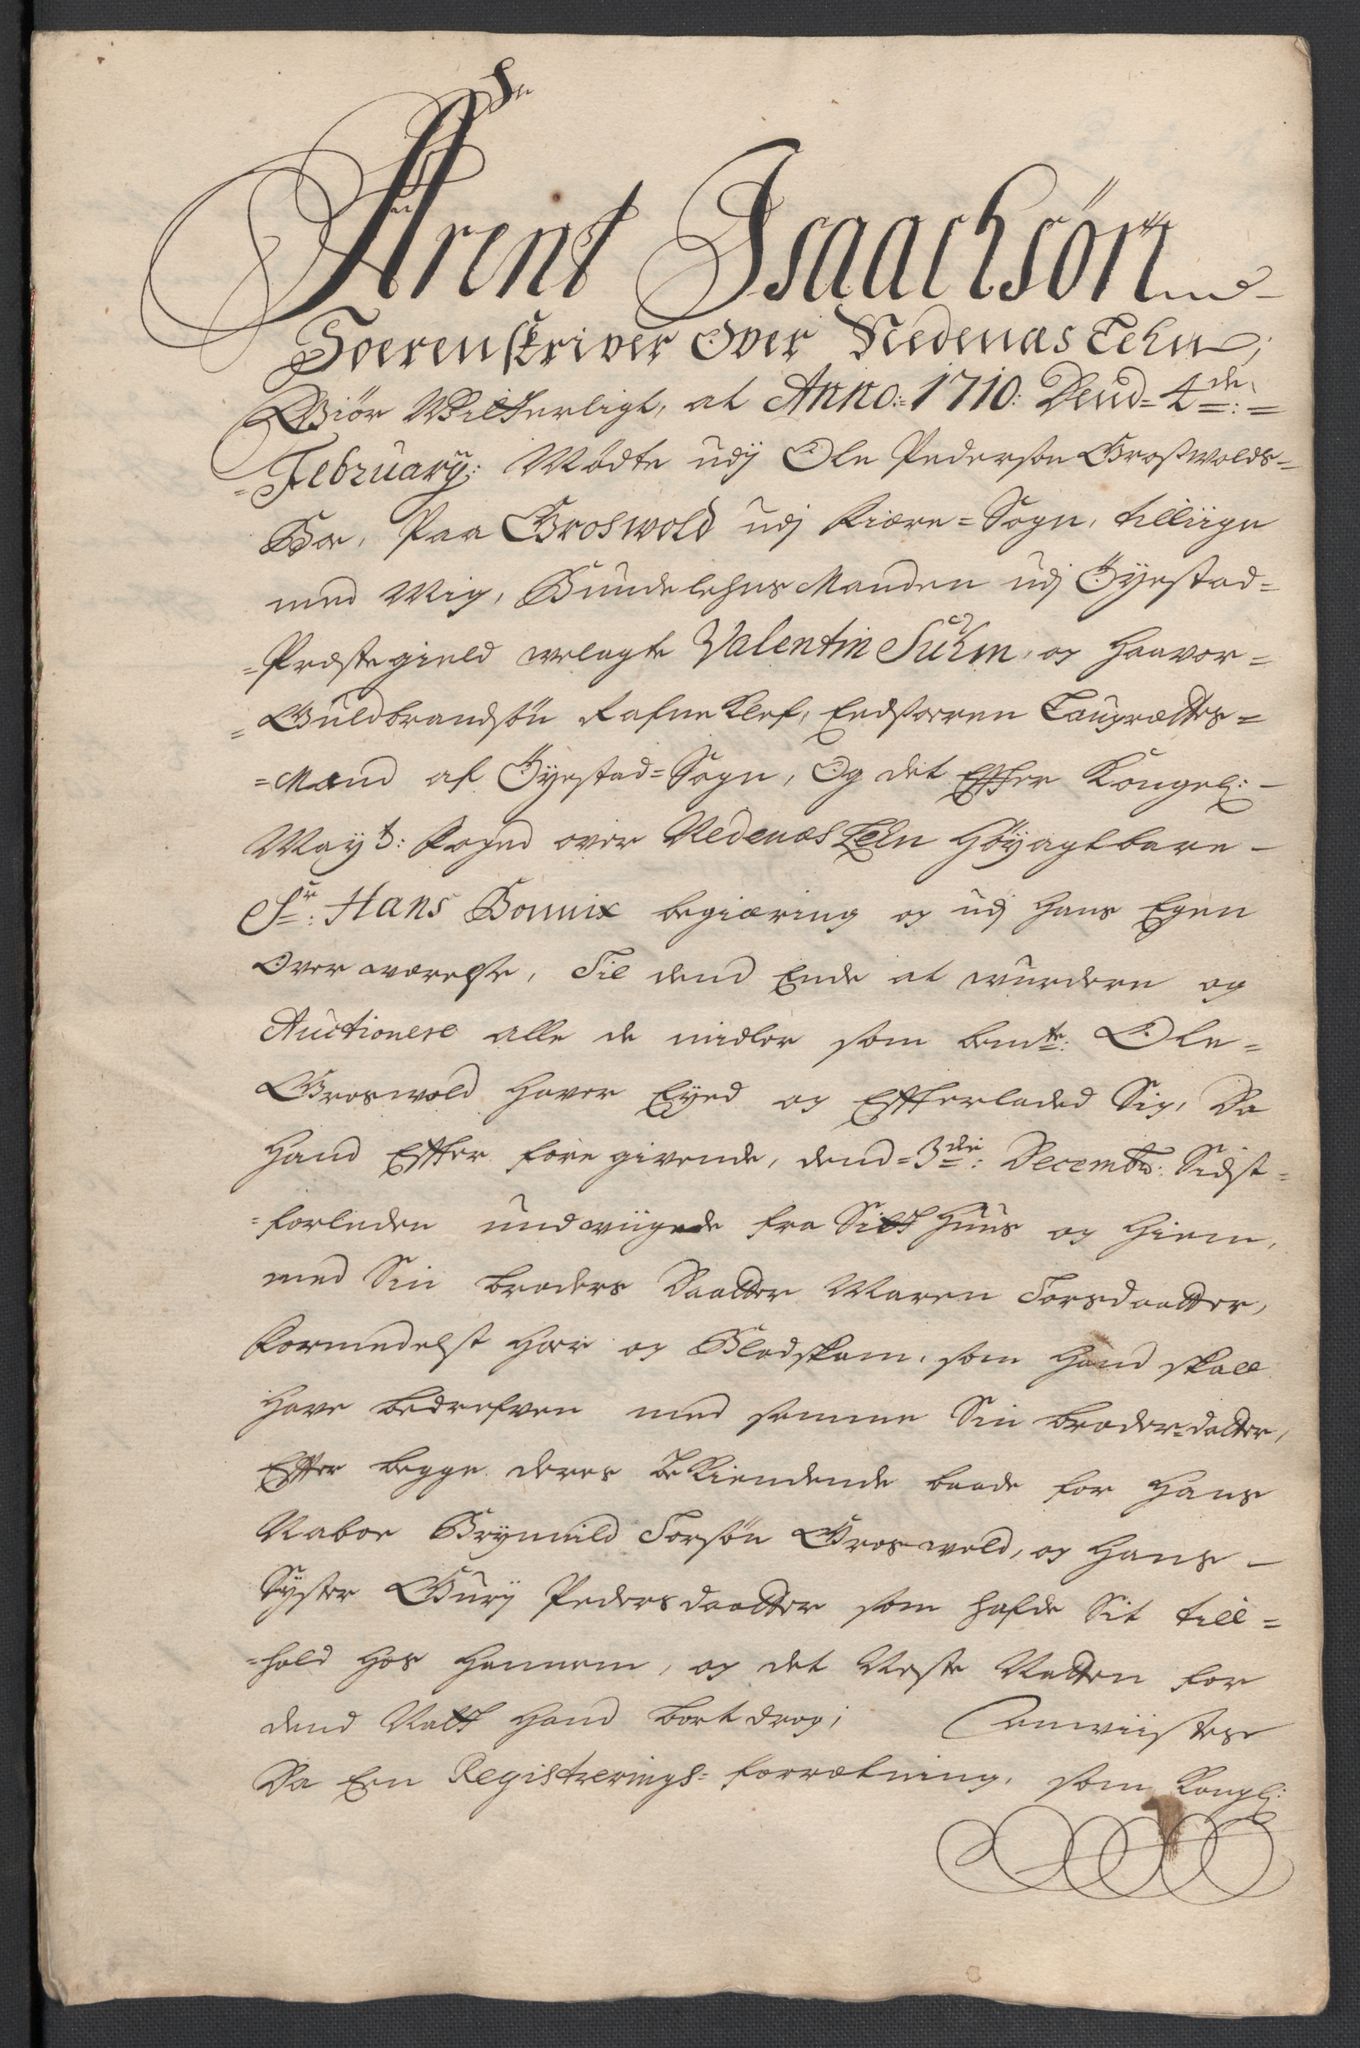 Arent Isaachsøn
Soerenskriver Over Nedenæs Lehn;
Giør Witterligt, at Anno: 1710: Dend 4de:
February: Mødte udj Ole Pedersøn Groswolds-
Boe, Paa Groswold udj Fiære-Sogn, tilliige
med Mig, Bunde lehns Manden udj Öyestad-
-Præstegield welagte Valentin Suhm, og Haavor-
-Guldbrandsøn Rafneklef, Eedsoren Laugrættes-
-Mand af Öyestad-Sogn, Og det Effter Kongel:
May:ts: Foged over Nedenæs Lehn Høyagtbare
Sr: Hans Bonnix begiæring og udj Hans Egen
Overwærelse, Til dend Ende at wurdere og
Auctionere alle de midler som bemte: Ole-
Groswold haver Eyed og Effterladed Sig, Da
Hand Effter foregivende, dend 3die: Decembr: Sidst-
-forleden undwiigede fra Sitt Huus og Hiem,
med Sin broders Daatter Maren Torsdaatter,
formedelst Hoer og Blodskam, som Hand skall
Have bedrefven med samme Sin broder-datter,
Effter begge deres bekiendende baade for Hans
Naboe Brynnild Torsøn Groswold, og Hans
Syster Gury Pedersdaatter som hafde Sit till-
-hold Hos Hannem, og det Neste Natten for
dend Natt Hand bortdrog; Ca[...]nwiistese
Da Een Registrerings-forrætning, som Kongl: